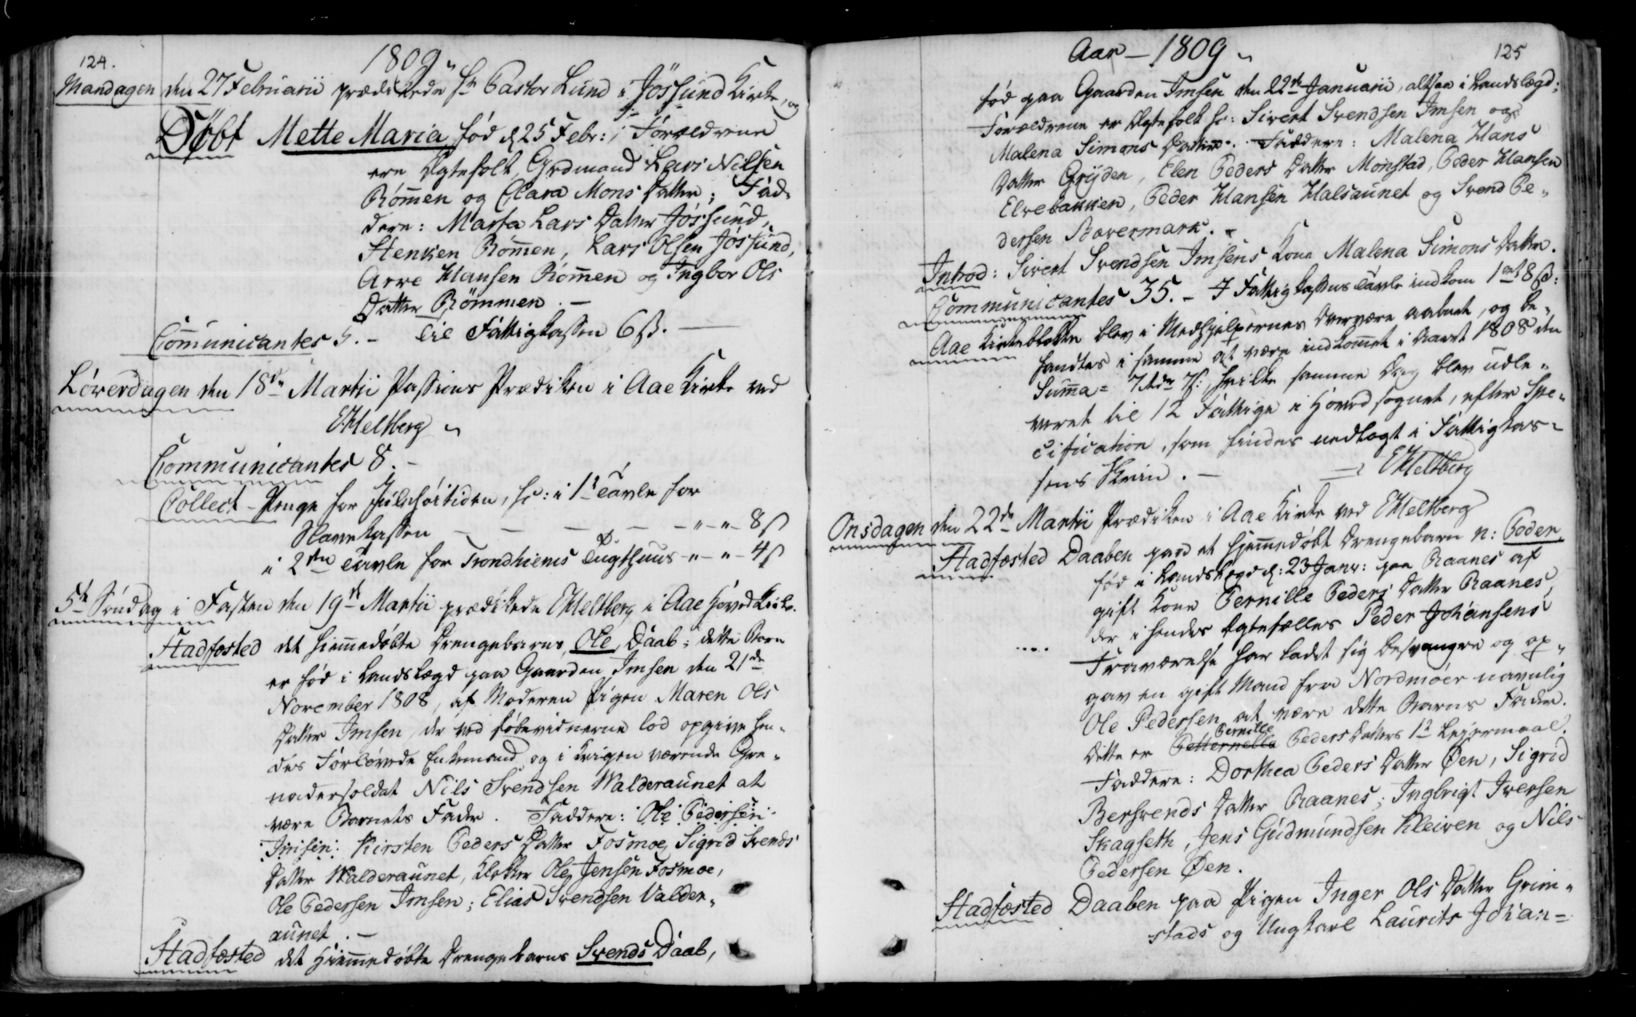 124.
1809
Mandagen den 27 Februarii prædikede Hr Pastor Lund i Jössund Kirke, og
Döbt Mette Maria fød d 25 Febr: Forældrene
ere Ægtefolk, Grdmand Lars Nilsen
Römmen og Clara Mons Datter; Fad-
dere: Marta Lars Datter Jössund,
Stenken Römmen, Lars Olsen Jössund,
Arve Hansen Römmen og Ingbor Ols
Datter Römmen. -
Communicantes 5. - Til Fattigkassen 6 ß.
Löverdagen den 18de Martii Passions Prædiken i Aae Kirke ved
EMeltberg
Communicantes 8. -
Collect-Penge for, i 1t Tavle for
- - - 8 ß
i 2den Tavle for Trondhiems Tugthuus - - 4 ß
5te Söndag i Fasten den 19de Martii prædikede EMeltberg i Aae Hovedkirke.
Stadfæsted det hiemmedöbte Drengebarns, Ole, Daab; dette Barn
er fød i Landslægd paa Gaarden Imsen den 21de
November 1808, af Moderen Pigen Maren Ols
Datter Imsen, der ved lod opgive hen-
des Forlovede Enkemand og i Krigen værende Gre-
nadersoldat Nils Svendsen Walderaunet at
være Barnets Fader. Faddere: Ole Pedersen
Imsen: Kirsten Peders Datter Fosmoe, Sigrid Svends
Datter Walderaunet, Klokker Ole Jensen Fosmoe,
Ole Pedersen Imsen; Elias Svendsen Valder-
aunet. -
Stadfæsted det Hiemmedöbte Drengebarns Svends Daab,
Aar - 1809
125
fød paa Gaarden Imsen den 22de Januarii, altsaa i Landslægd;
Forældrene er Ægtefolk: Sivert Svendsen Imsen og
Malena Simons Datter. Faddere: Malena Hans
Datter Gryden, Elen Peders Datter Monstad, Peder Hansen
Elvebakken, Peder Hansen Halsaunet og Svend Pe-
dersen Bovermark.
Introd: Sivert Svendsen Imsens Kone Malena Simons Datter.
Communicantes 35. - I Fattigkassens Tavle indkom 1 ort 8 ß:
Aae Kirkeblokken blev i Medhjelpernes Overvære aabnet, og be-
fandtes i samme at være indkommet i Aaret 1808 den
Summa= 7 hvilke samme Dag blev udle-
veret til 12 Fattige i Hovedsognet, efter Spe-
cification, som findes nedlagt i Fattigkas-
sens Skrin. - EMeltberg
Onsdagen den 22de Martii Prædiken i Aae Kirke ved EMeltberg
Stadfæsted Daaben paa et hjemmedöbt Drengebarn n: Peder,
fød i Landslægd d: 23 Janv: paa Raanes af
gift Kone Pernille Peders Datter Raanes,
der i hendes Ægtefælles Peder Johansens
Fraværelse har ladet sig besvangre og op-
gav en gift Mand fra Nordmöer navnlig
Ole Pedersen at være dette Barns Fader.
Pernille
Dette er Petternella Peders Datters 1te Lejermaal.
Faddere: Dorthea Peders Datter Öen, Sigrid
Bersvends Datter Raanes; Ingbrigt Iversen
Skagseth, Jens Gudmundsen Kleiven og Nils
Pedersen Öen.
Stadfæsted Daaben paa Pigen Inger Ols Datter Grim-
stads og Ungkarl Laurits Johan-